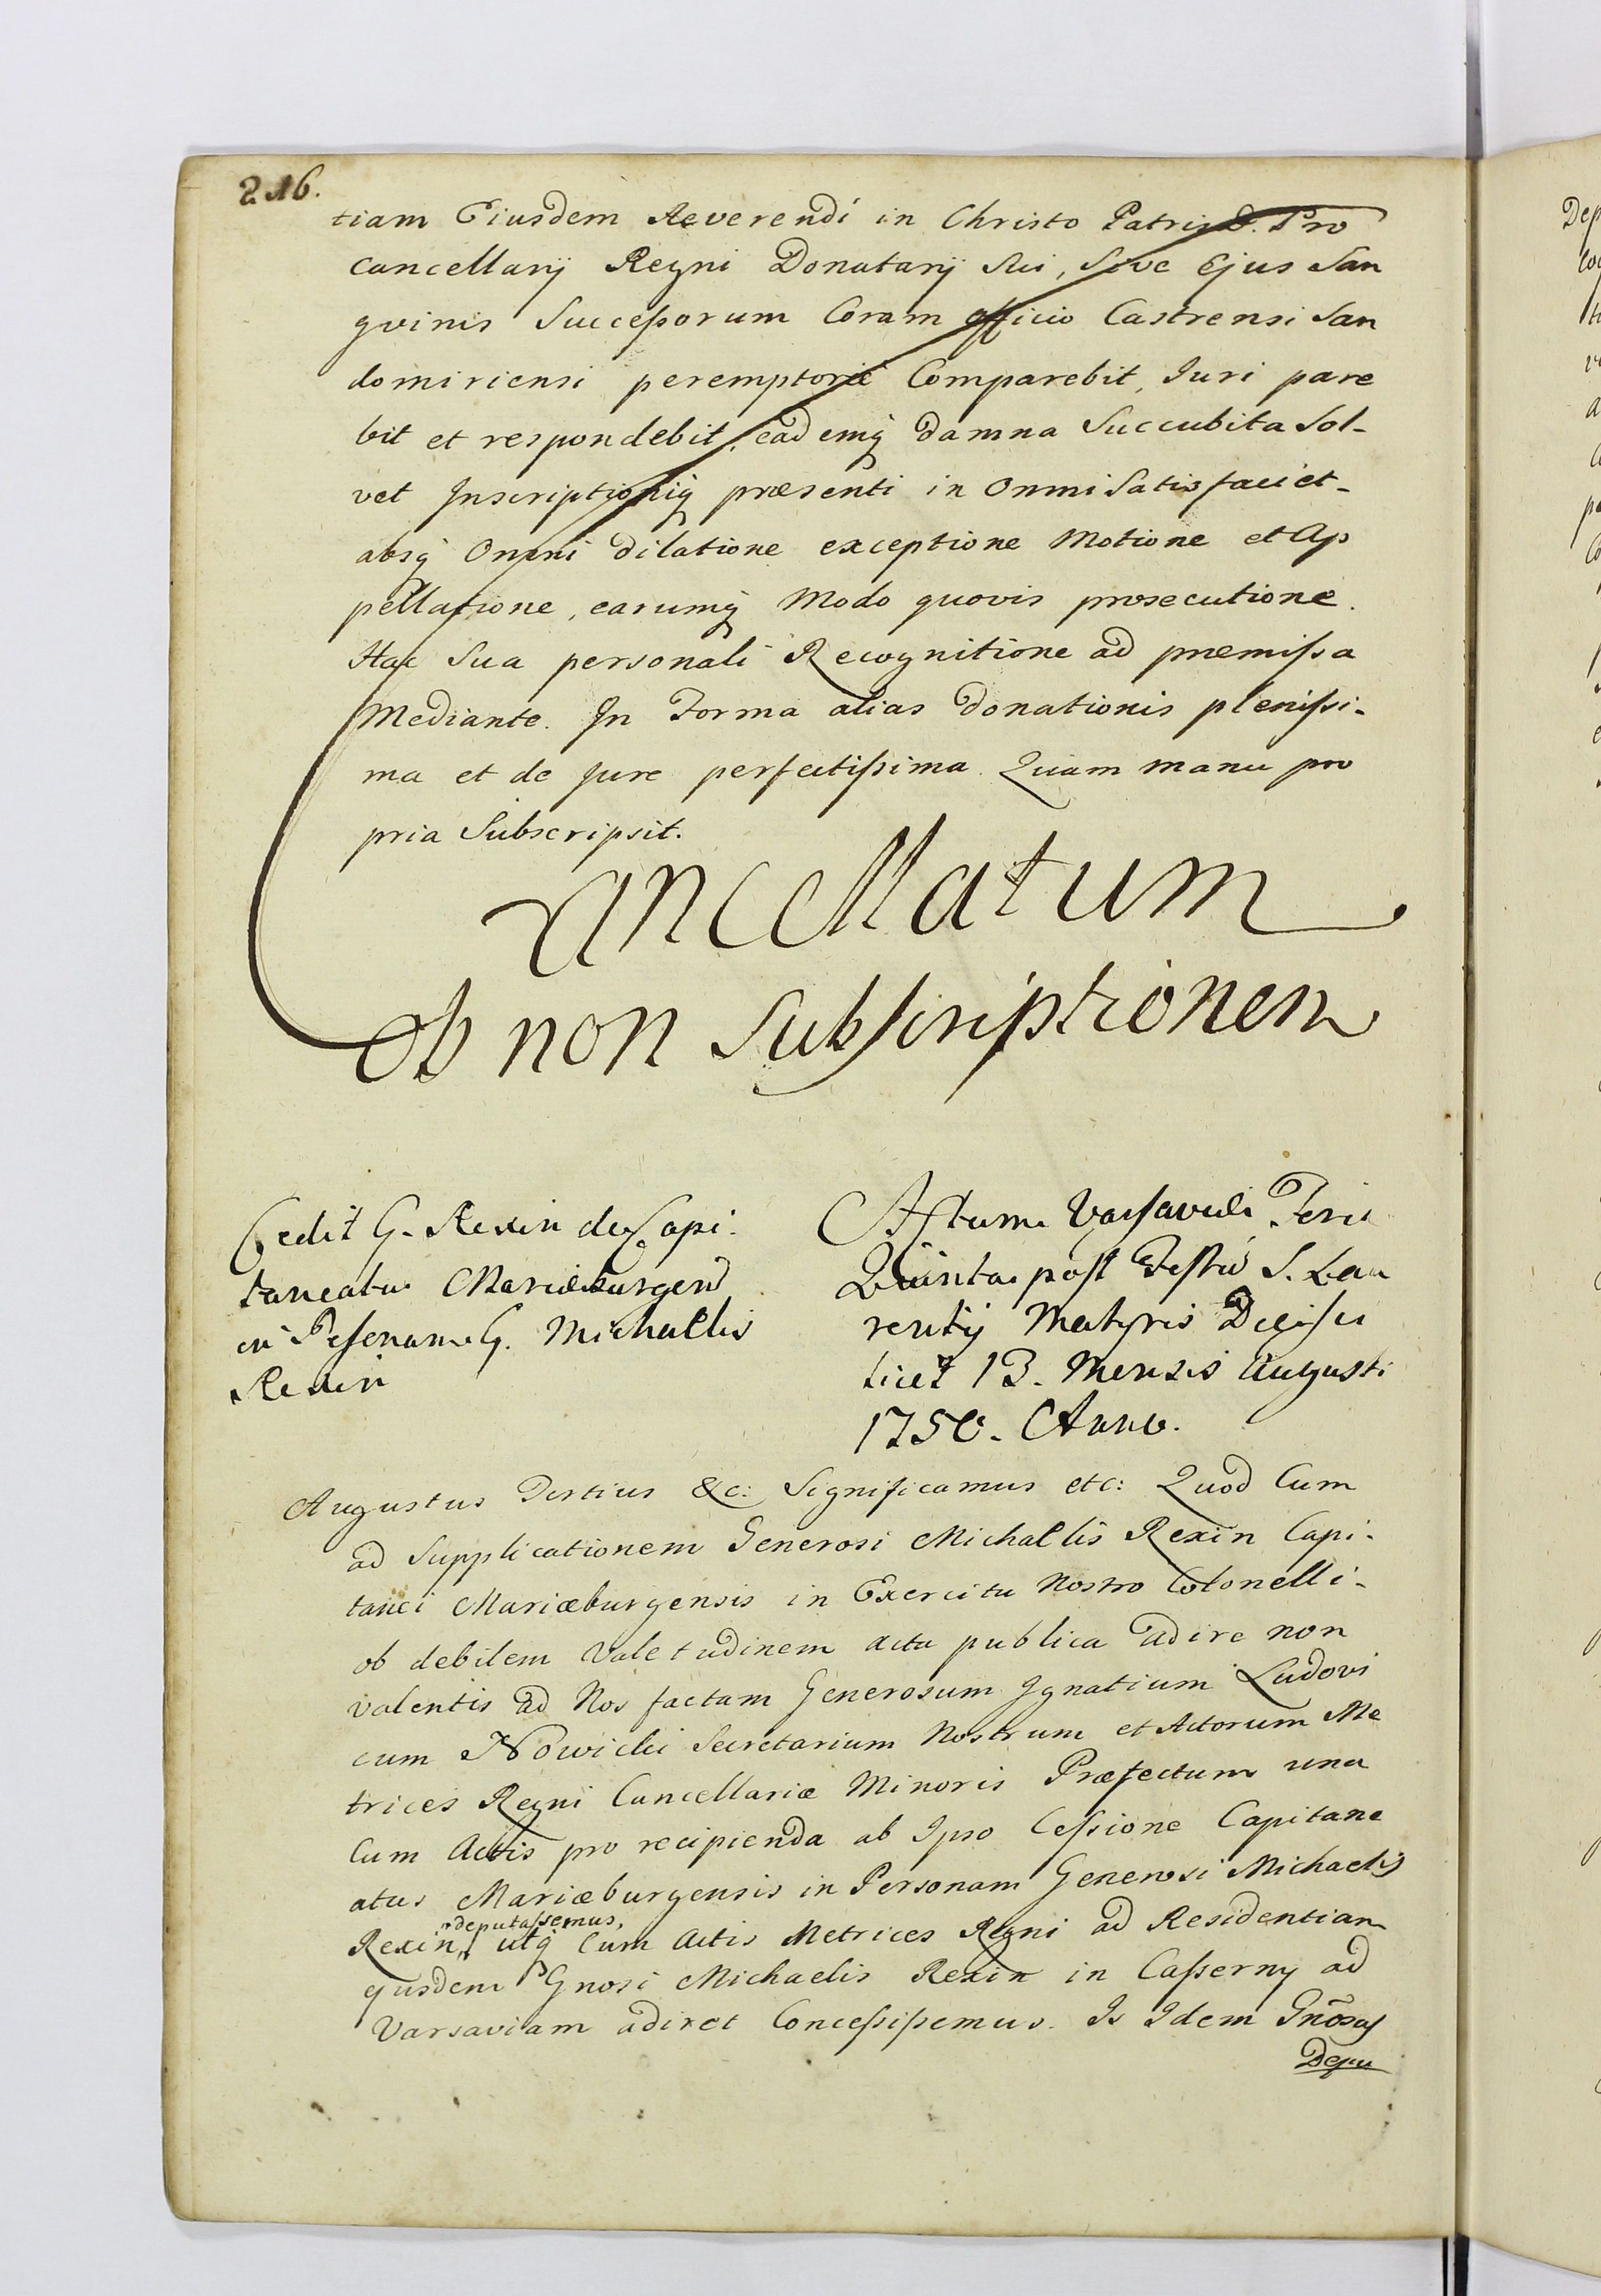 216.
tiam Eiusdem Reverendi in Christo Patris D. Pro
Cancellarij Regni Donatarij Sui, Sive Ejus San
gvinis Succeſsorum Coram officio Castrensi San
domiriensi peremptorie Comparebit, Iuri pare
bit et respondebit, eademq damna Succubita Sol-
vet Inscriptioniq præsenti in Omni Satisfaciet-
absq Omni dilatione exceptione Motione et Ap
pellatione, earumq Modo quovis prosecutione.
Hac Sua personali Recognitione ad præmiſsa
Mediante. In Forma alias donationis pleniſsi-
ma et de Jure perfectiſsima Quam manu pro
pria Subscripsit.
Cancellatum
Ob non Subscriptionem
Cedit G. Rexin de Capi-
taneatu Mariæburgen
in Personam G. Michaelis
Rexin
Actum Varsaviæ Feria
Quinta post Festū S. Lau
rentij Martyris Die
licet 13. Mensis Augusti
1750. Anno.
Augustus Tertius &c: Significamus etc: Quod Cum
ad Supplicationem Generosi Michaelis Rexin Capi-
tanei Mariæburgensis in Exercitu Nostro Colonelli-
ob debilem Valetudinem acta publica adire non
valentis ad Nos factam Generosum Ignatium Ludovi
cum Nowicki Secretarium Nostrum et Actorum Me
trices Regni Cancellariæ Minoris Præfectum una
Cum Actis pro recipienda ab Ipso Ceſsione Capitane
atus Mariæburgensis in Personam Generosi Michaelis
deputaſsemus,
Rexin, utq Cum Actis Metrices Regni ad Residentiam
ejusdem Gnosi Michaelis Rexin in Caſserny ad
Varsaviam adiret Conceſsiſsemus. Is Idem Gnōsus
Depu